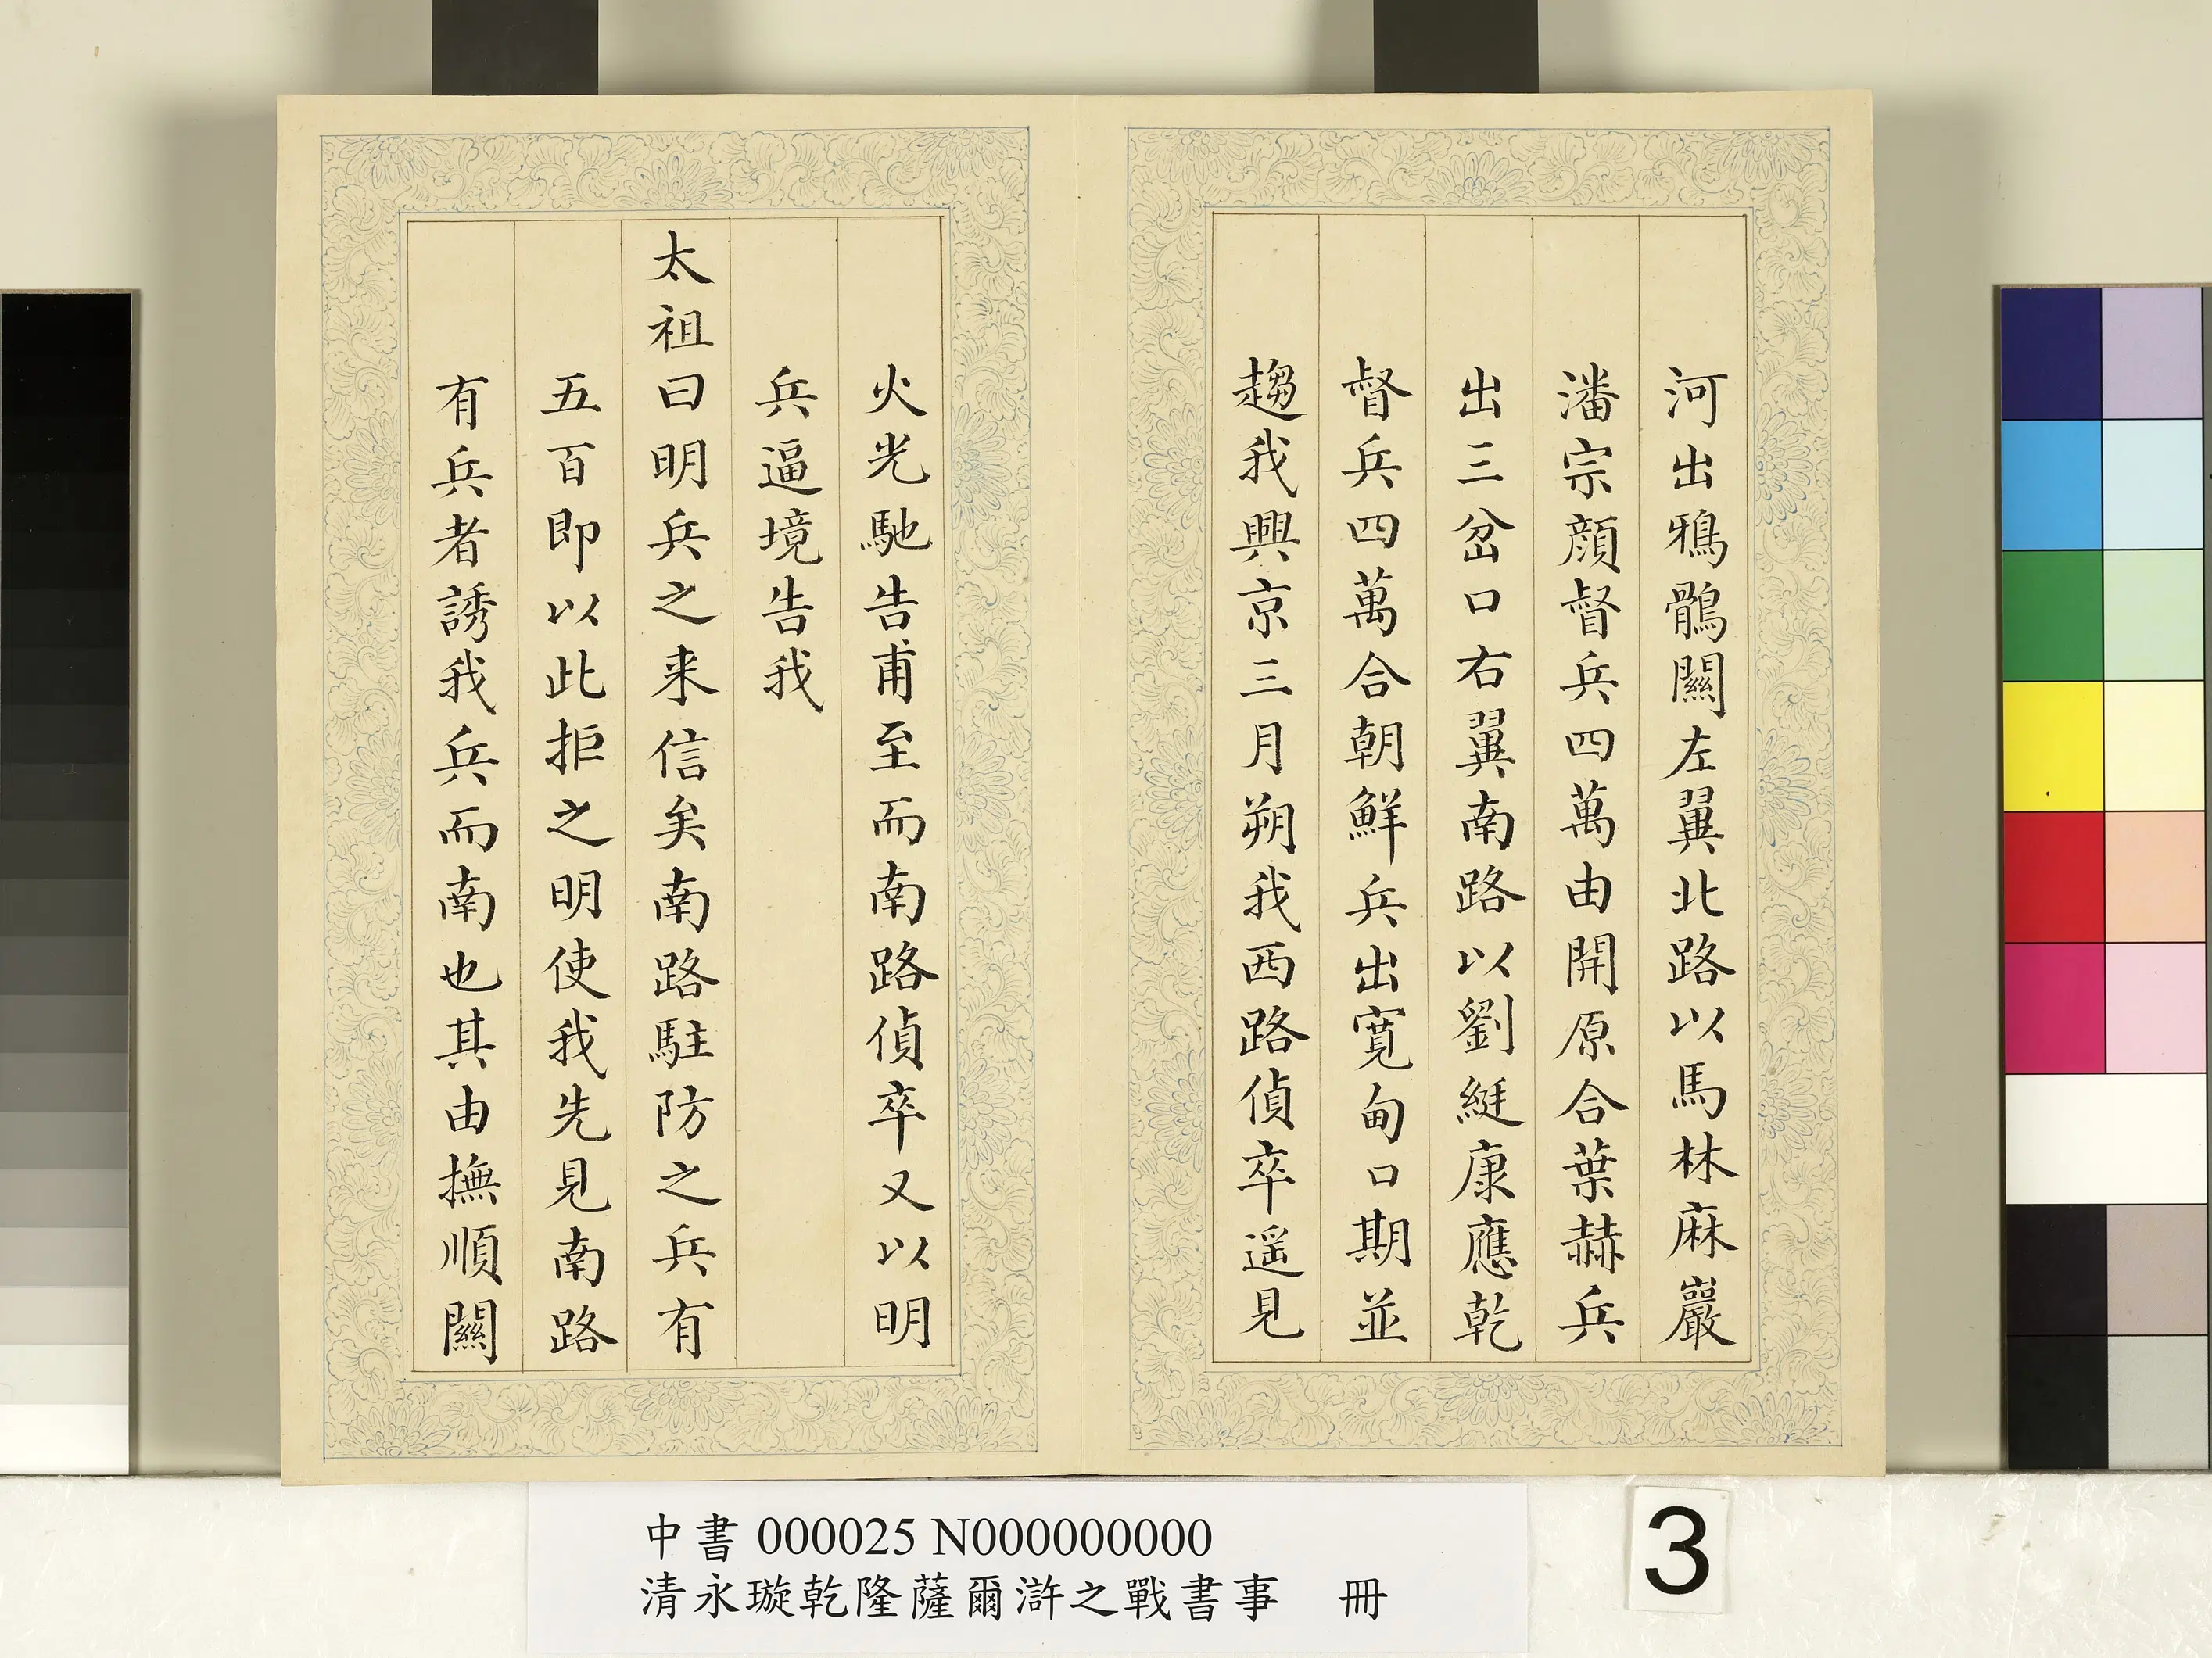 河出鴉鶻關左翼北路以馬林麻巖
潘宗顔督兵四萬由開原合葉赫兵
出三岔口右翼南路以劉綎康應乾
督兵四萬合朝鮮兵出寬甸口期並
趨我興京三月朔我西路偵卒遥見
火光馳告甫至而南路偵卒又以明
兵逼境告我
太祖曰明兵之来信矣南路駐防之兵有
五百即以此拒之明使我先見南路
有兵者誘我兵而南也其由撫順關
中書 000025 N000000000
清永璇乾隆薩爾滸之戰書事 冊
3